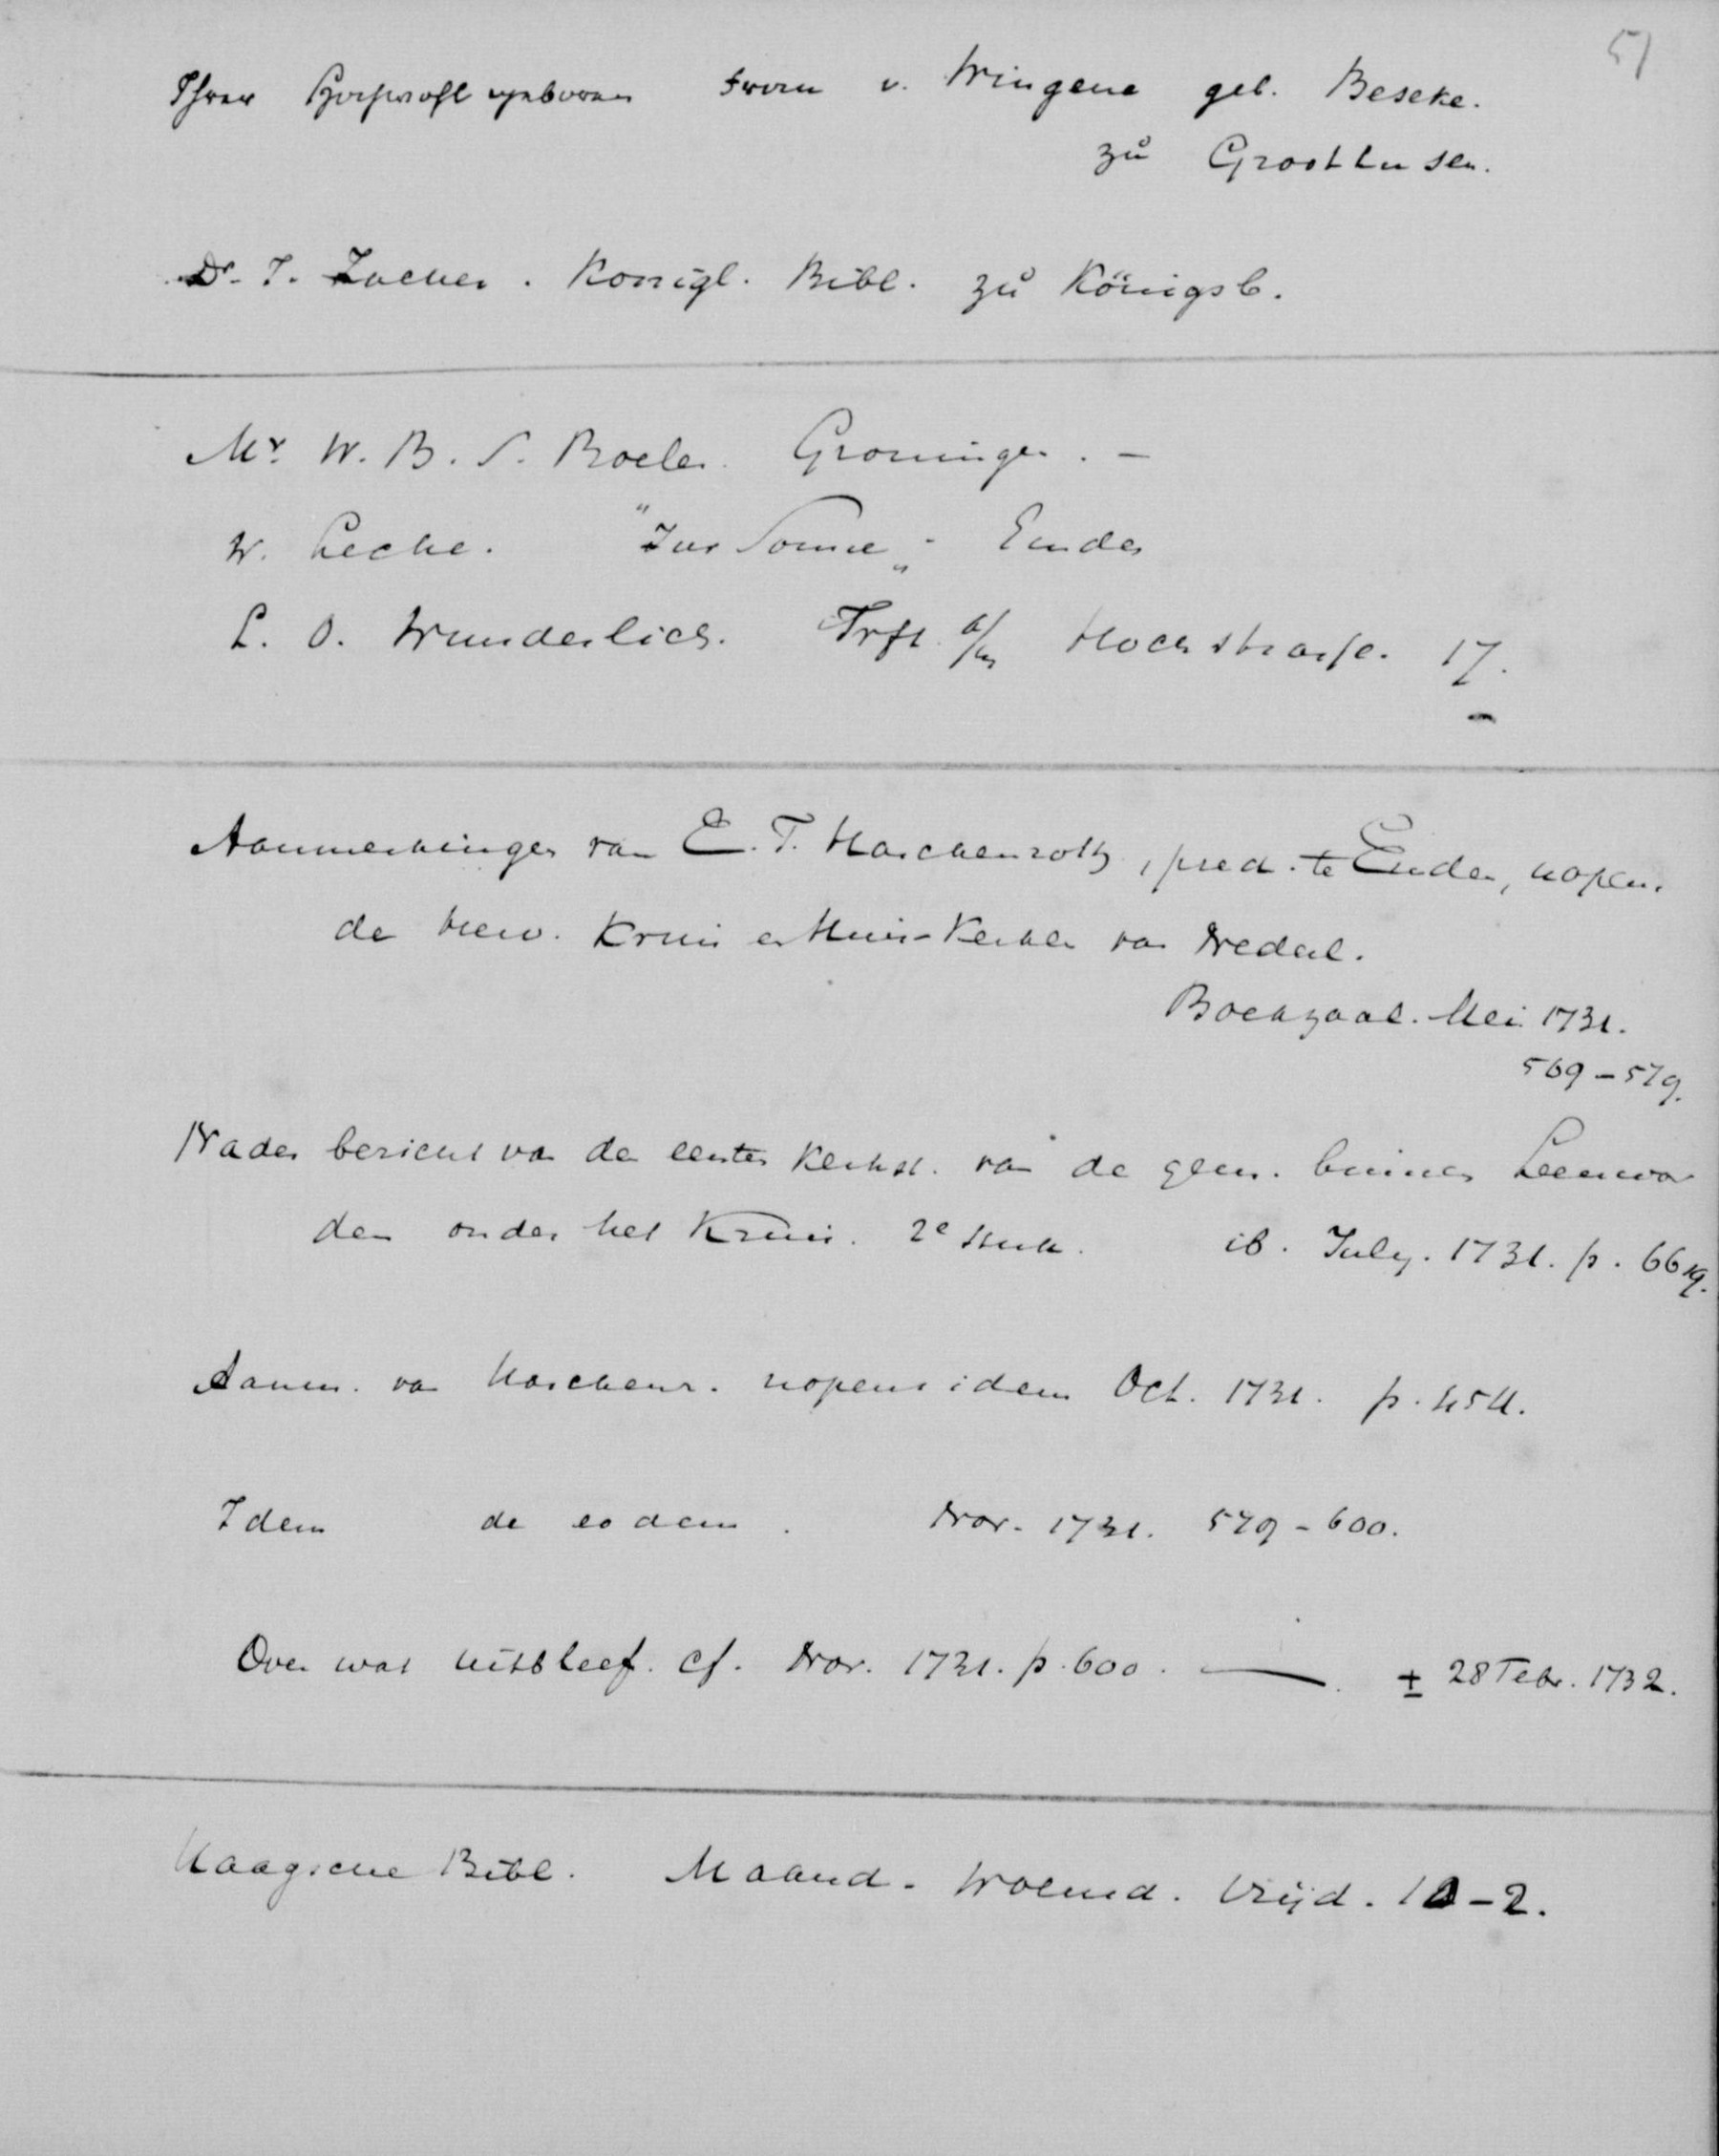 51
Ihrer Hochwohlgeboren Frau v. Wingene geb. Beseke.
zu Groothusen.
Dr. J. Zacher. Königl. Bibl. zu Königsb.
Mr. W. B. S. Boeles. Groningen. –
W. Leche. "Zur Sonne" Emden
L. O. Wunderlich. Frft. a/M Hochstrasse. 17.
Aanmerkingen van E. F. Harckenroth, pred. te Emden, nopens
de herv. Kruis en Huis-Kerken van Nederl.
Boekzaal. Mei 1731.
569–579.
Nader bericht van den eersten Kerkst. van de gem. binnen Leeuwar
den onder het Kruis. 2e stuk. ib. July. 1731. p. 66
Aanm. van Harckenr. nopens idem Oct. 1731. p. 454.
Idem de eodem. Nov. 1731. 579–600.
Over wat uitbleef. cf. Nov. 1731. p. 600. — ± 28 Febr. 1732.
Haagsche Bibl. Maand. Woensd. Vrijd. 10–2.